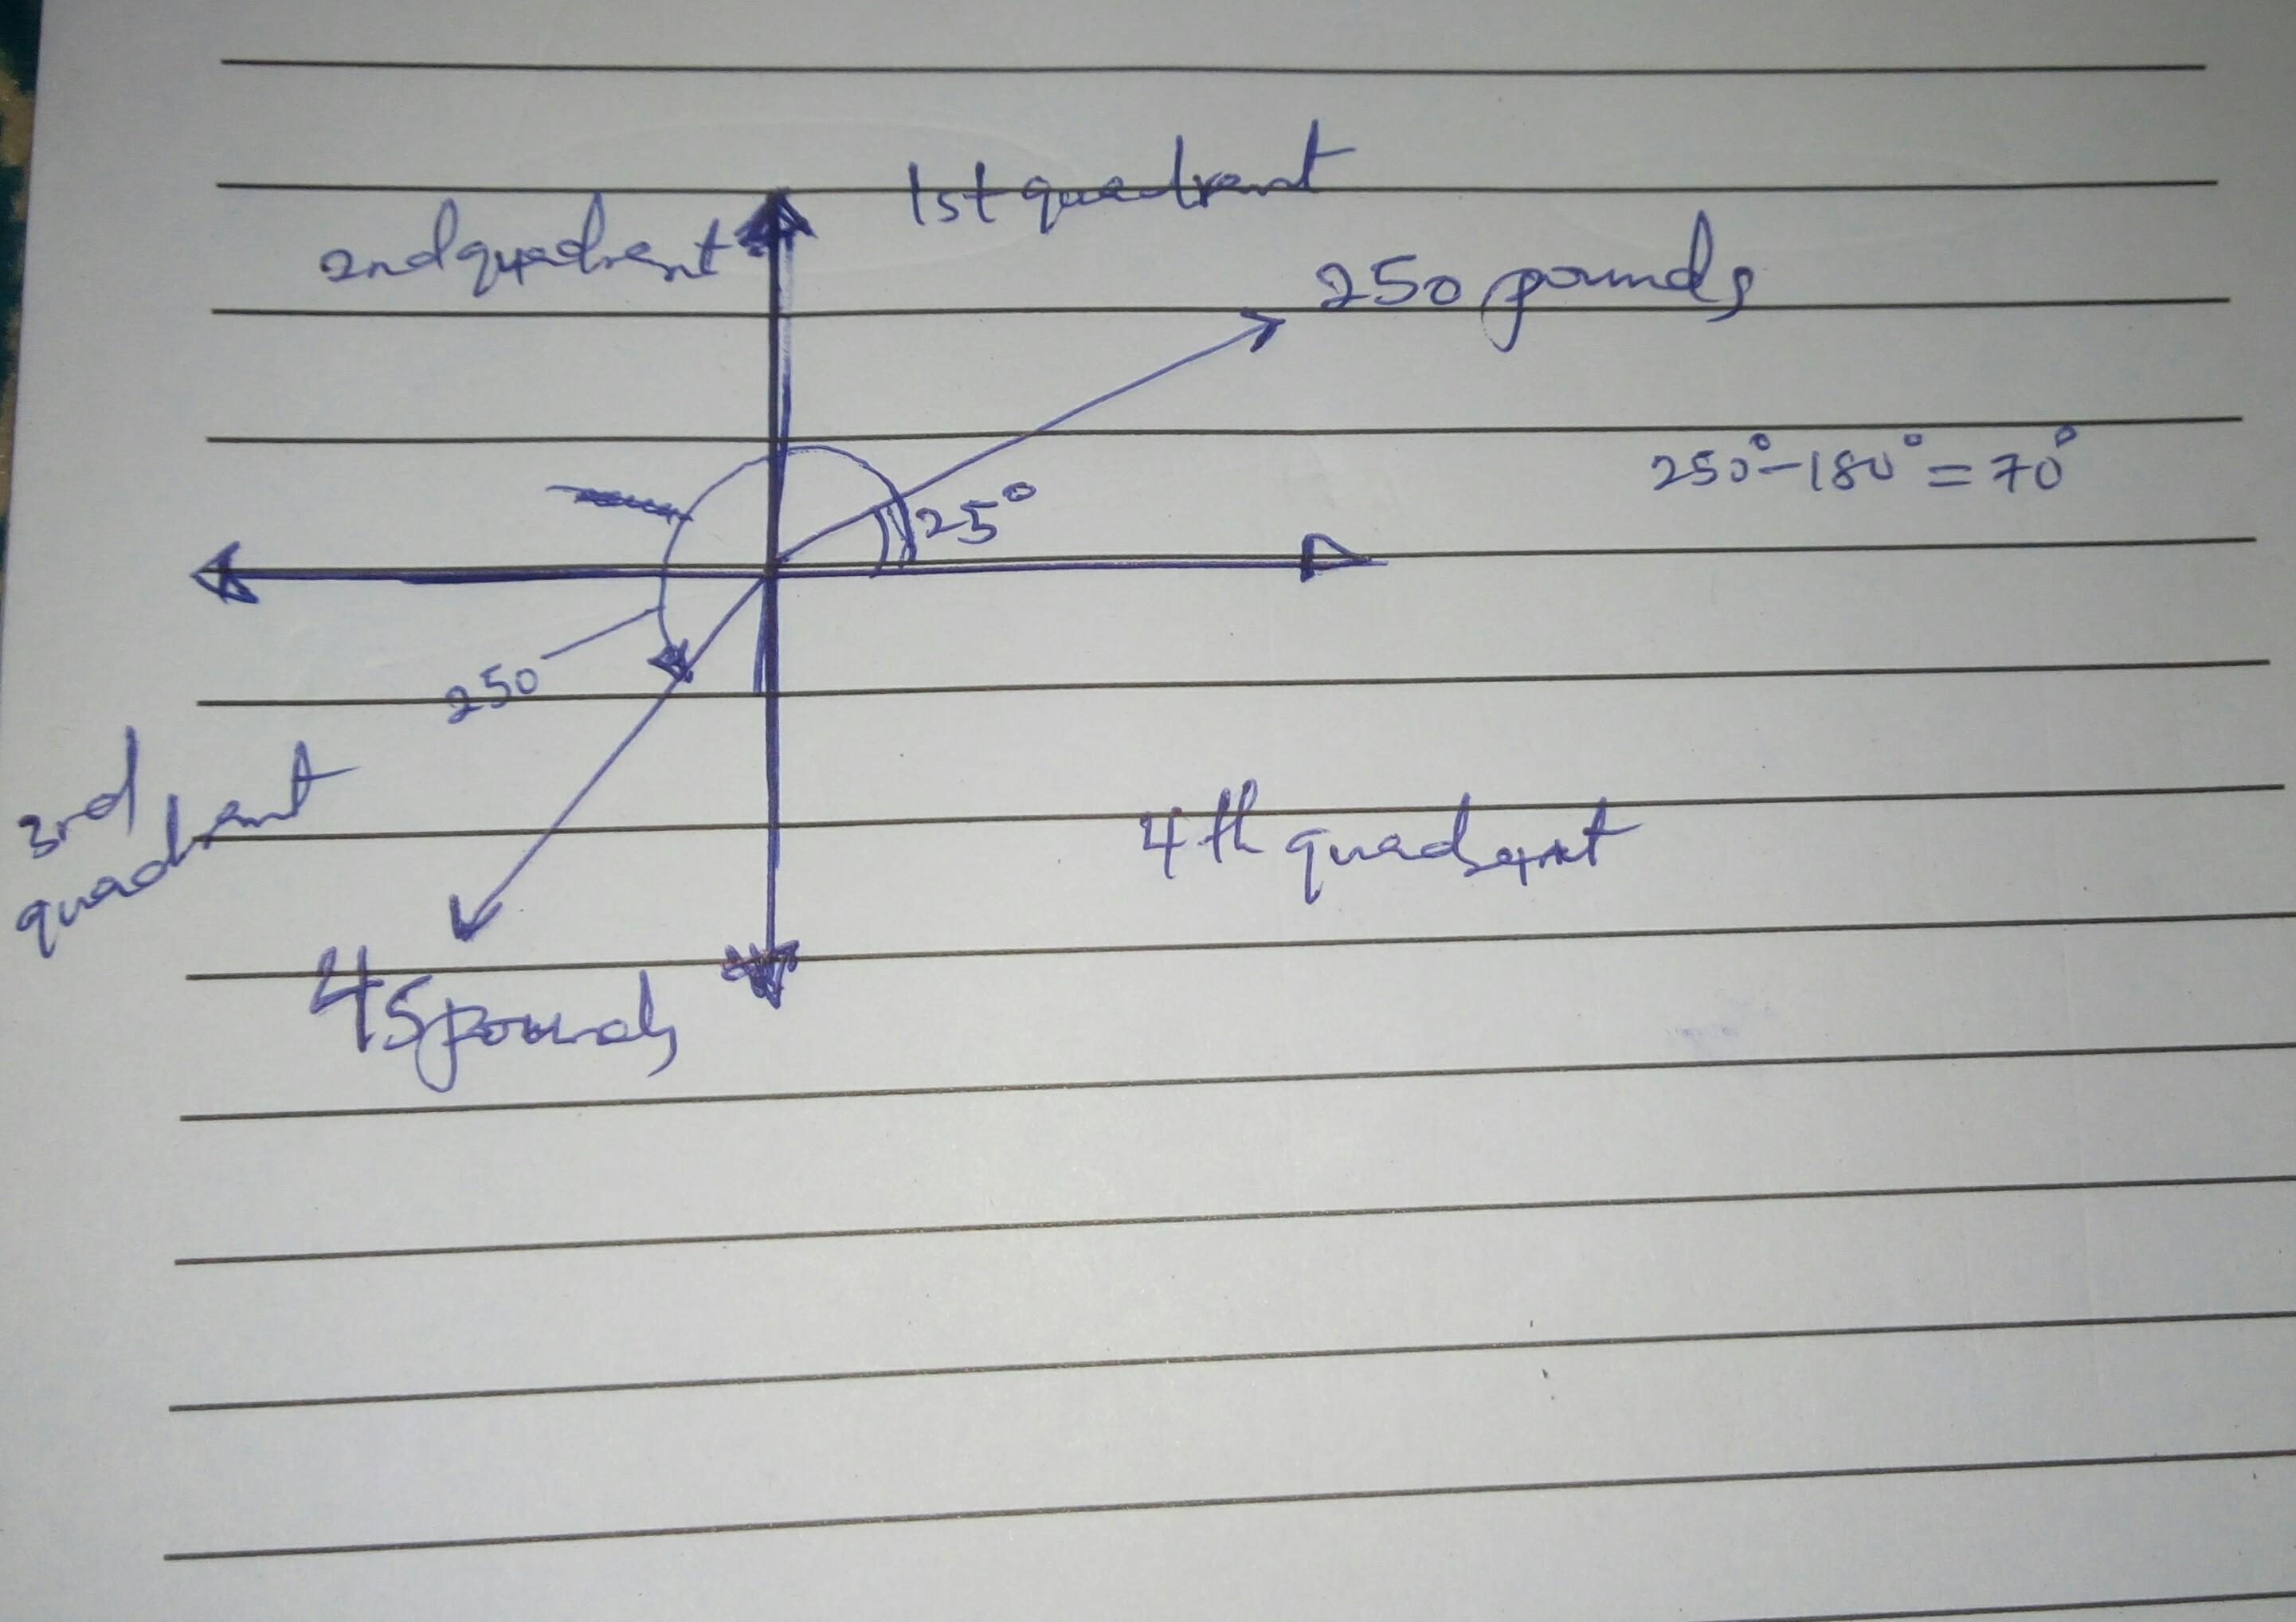 1st quadrant
2nd quadrant
250 pounds
250° - 180° = 70°
25°
250
3rd
quadrant
4th quadrant
45 pounds